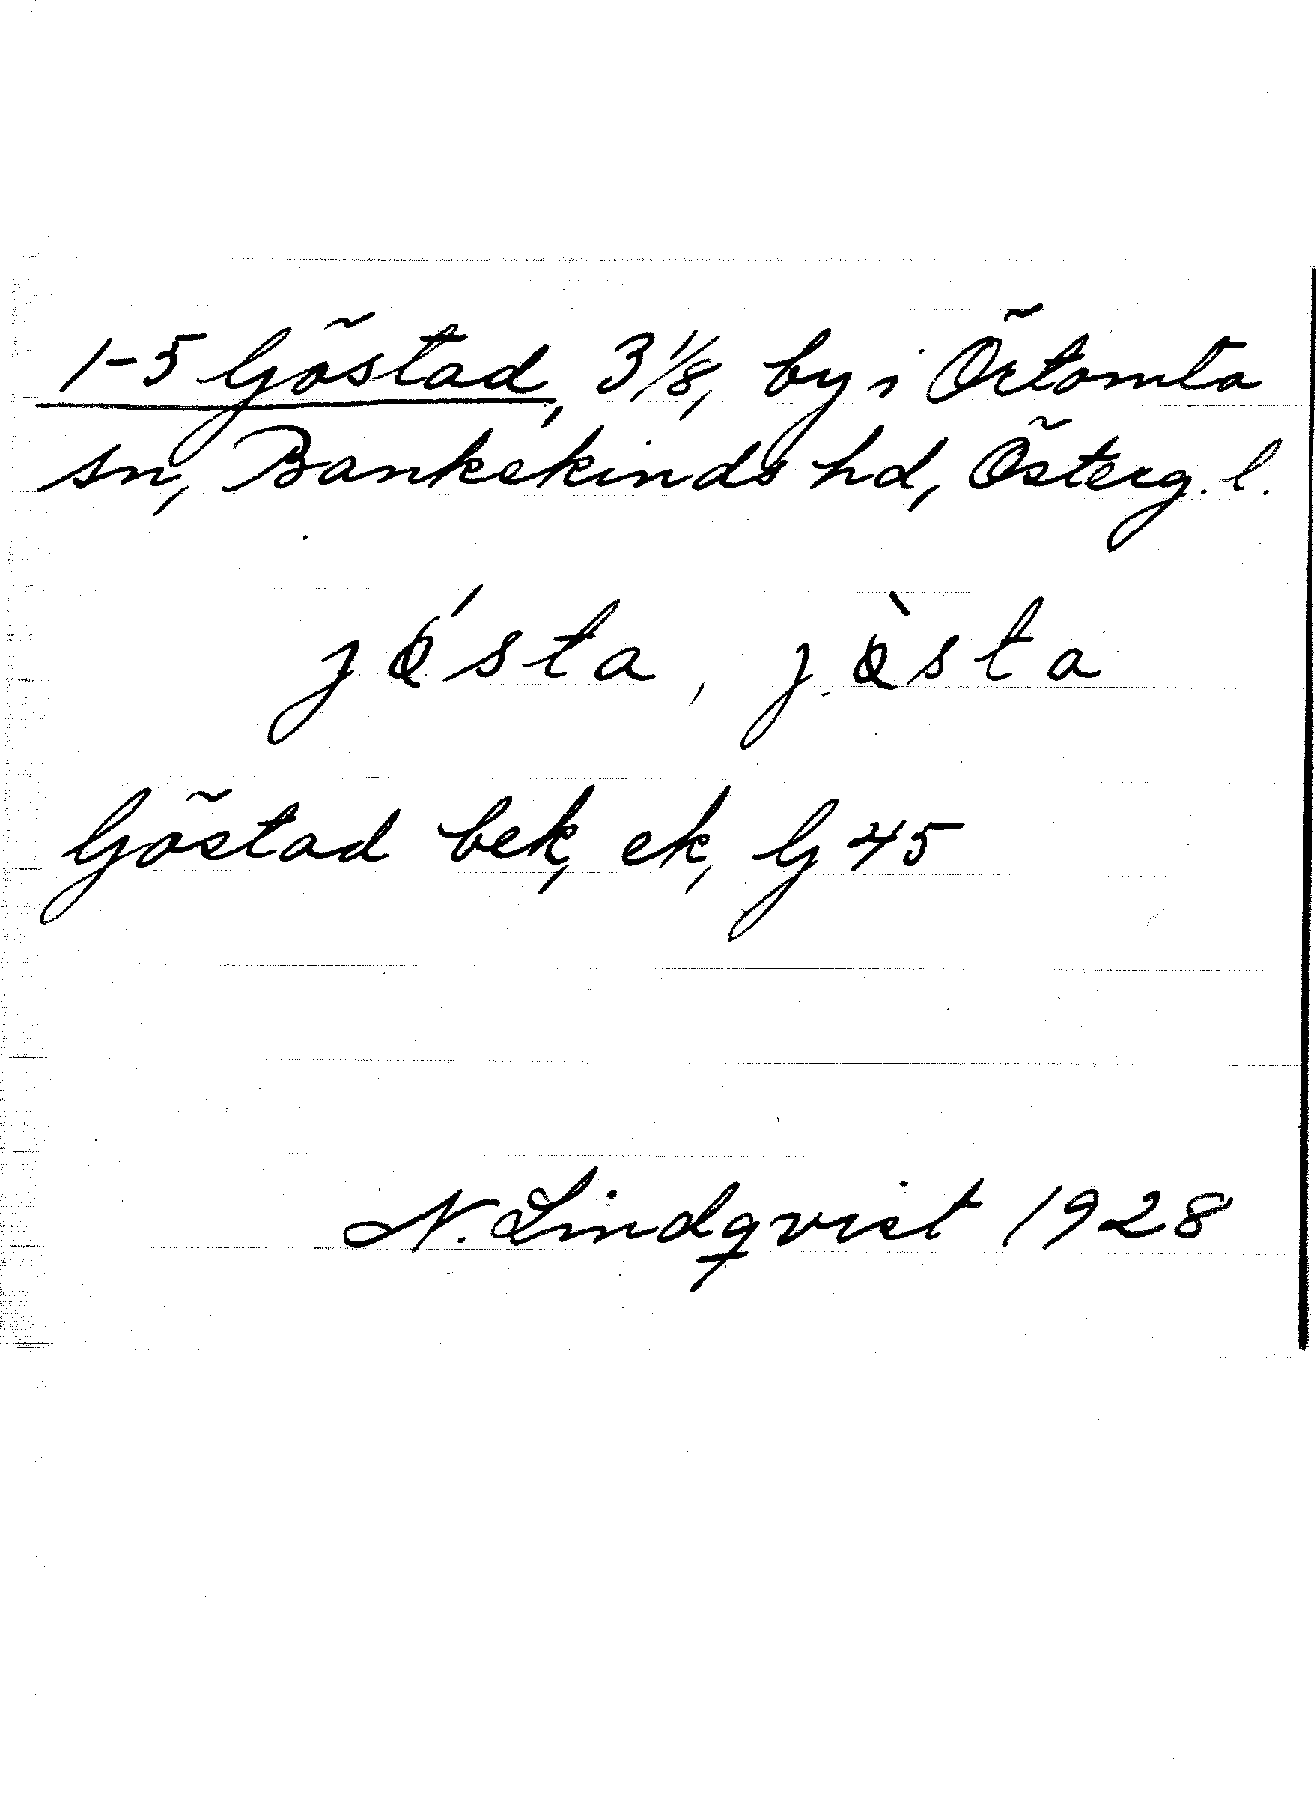 1-5 Göstad, 3 1/8, by i Örtomta
sn, Bankekinds hd, Österg. l.
jǿsta, jø̀sta
Göstad bek, ek, G 45
N. Lindqvist 1928